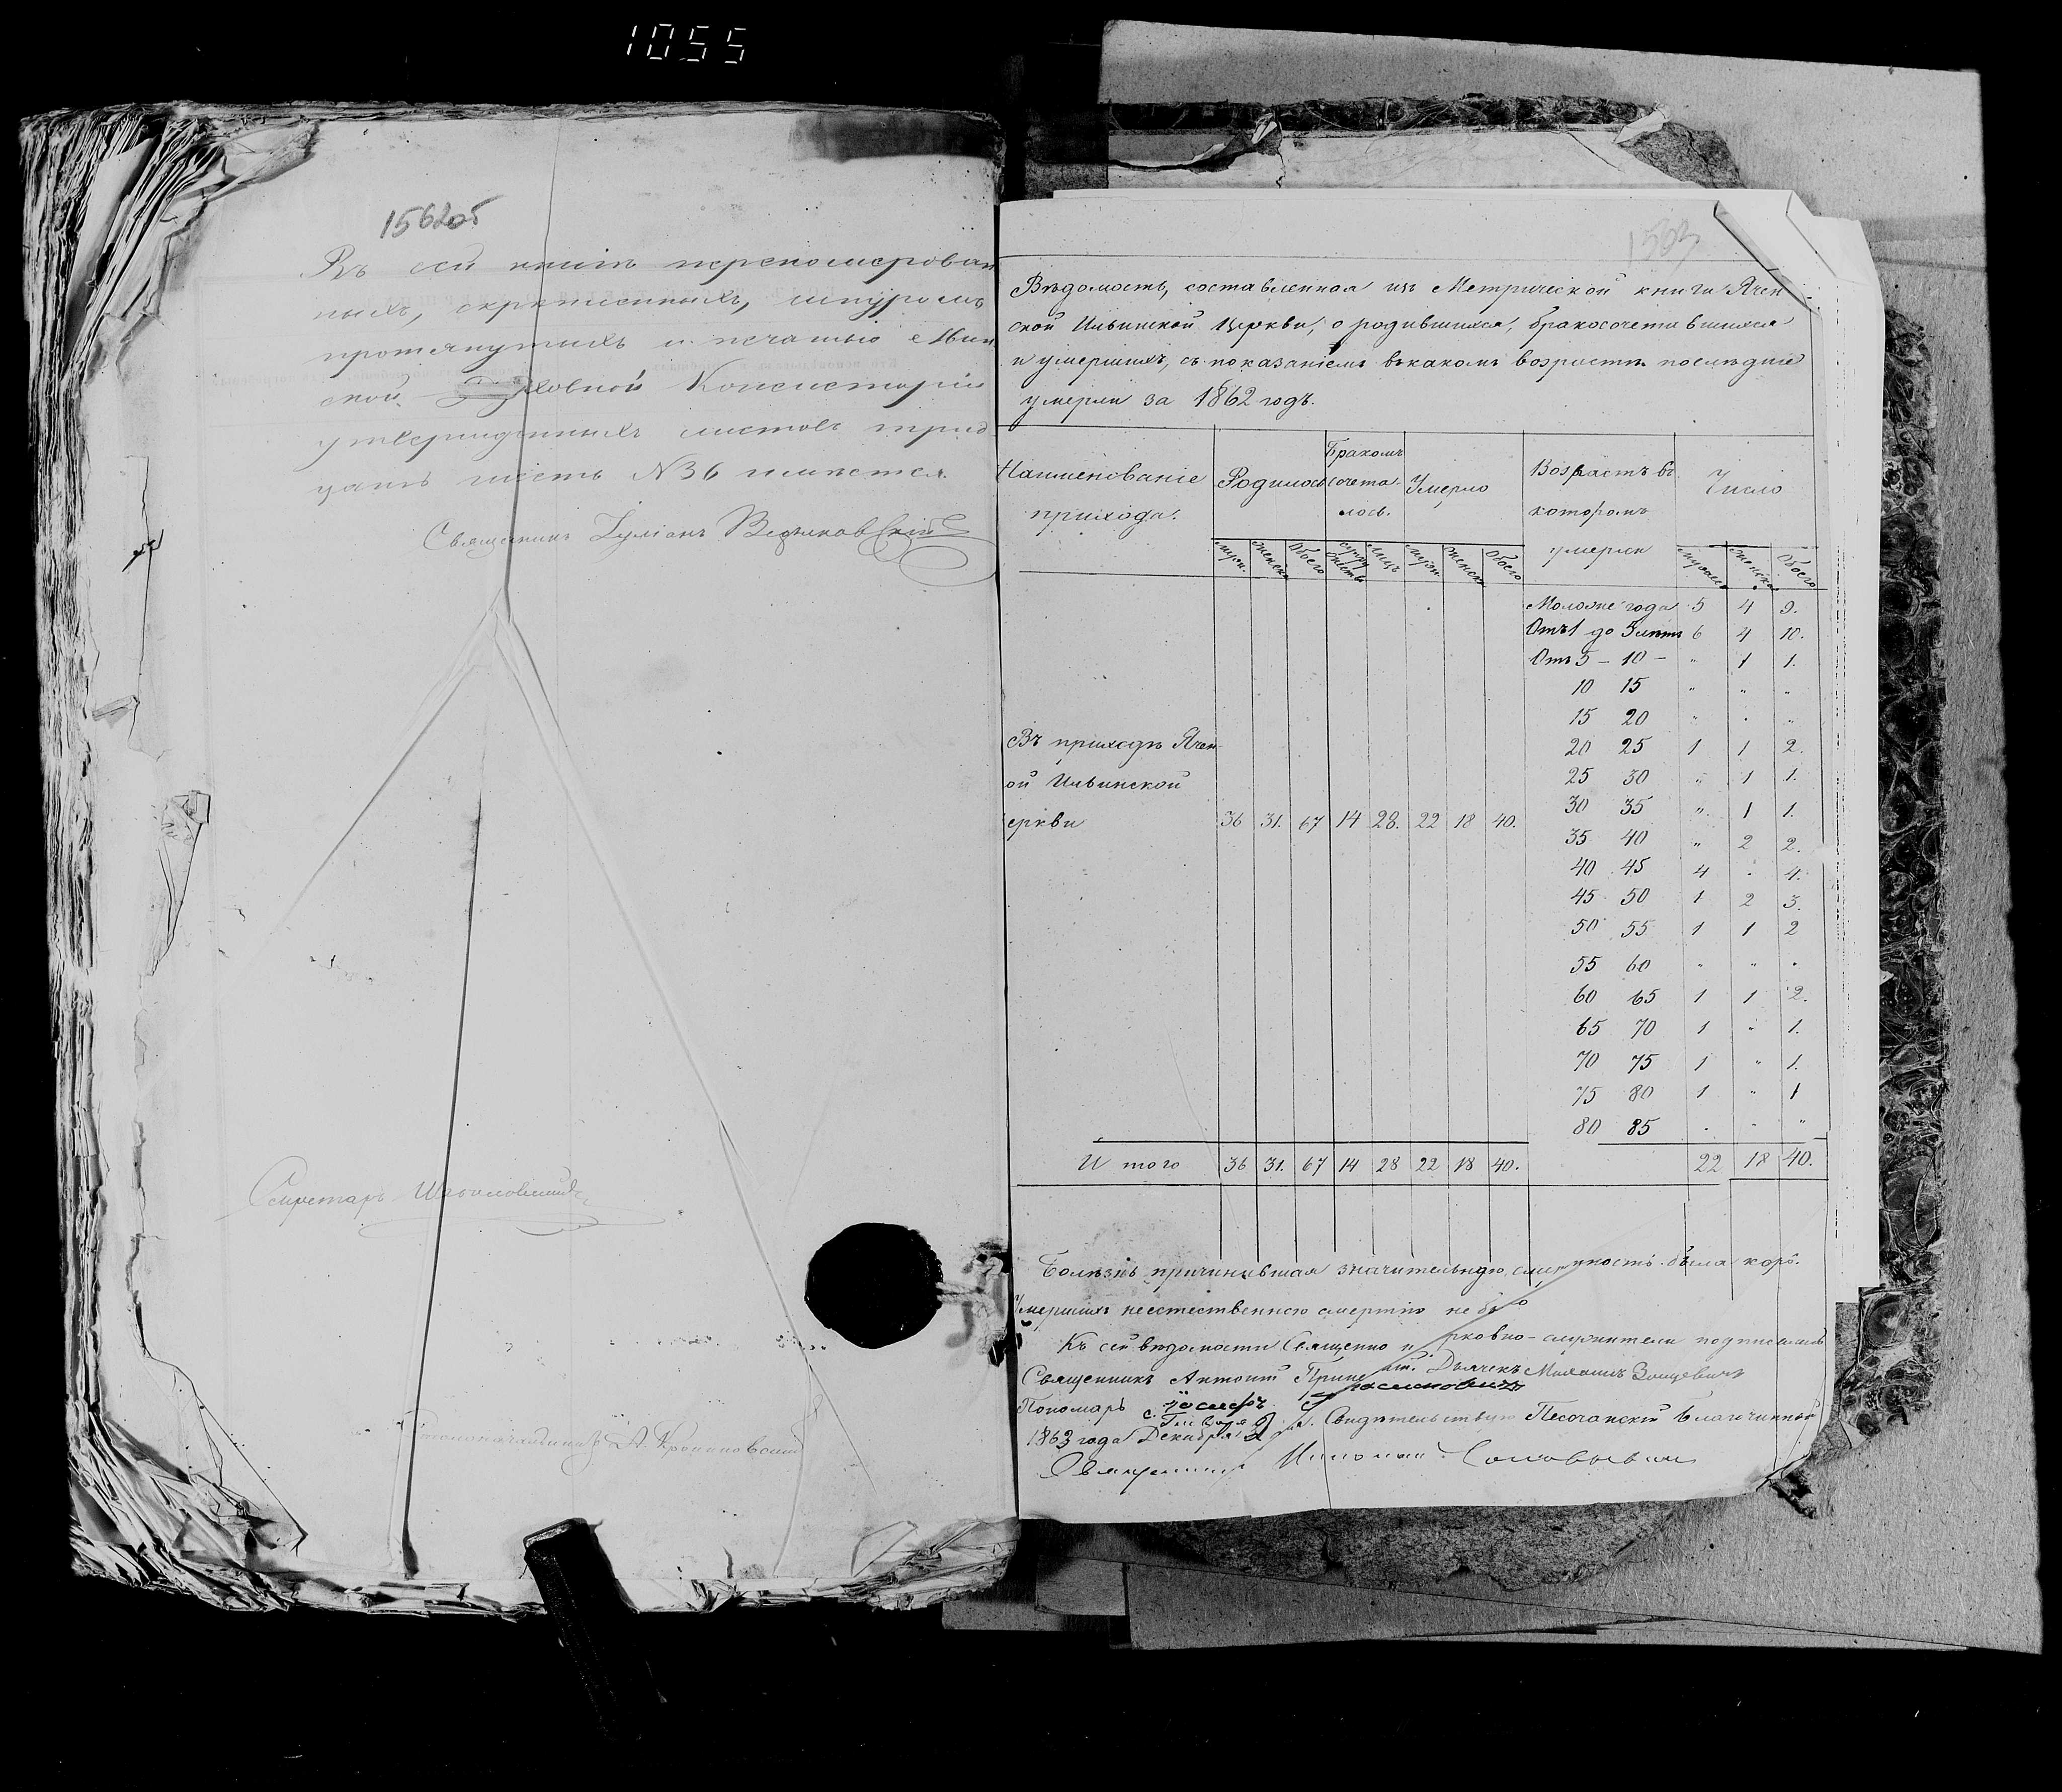 1055
1562об
Въ сей книгѣ переномерован
ныхъ, скрѣпленныхъ, шнуромъ
протянутыхъ и печатью Мин
ской Духовной Консисторіи
утвержденныхъ листовъ трид
цать шесть N36 имѣется
Священникъ Іуліанъ
Секретарь
Столоначальникъ А.
1563
Вѣдомость, составленная изъ Метрической книги Ячен
ской Ильинской Церкви, о родившихся, бракосочетавшихся
и умершихъ, съ показаніемъ въ какомъ возрастѣ послѣдніе
умерли за 1862 годъ.
Наименованіе прихода. Родилось Бракомъ сочета-лось. Умерло Возрастъ въ которомъ умерли Число
муж. женск. Обоего супружествъ лицъ муж. женск. Обоего мужеска женска Обоего
Моложе года 5 4 9.
Отъ 1 до 5 лѣтъ 6 4 10.
Отъ 5 - 10 - " 1 1.
10 15 " " "
15 20 " " "
Въ приходѣ Ячен- 20 25 1 1 2.
ой Ильинской 25 30 " 1 1.
30 35 " 1 1.
еркви 36 31. 67 14 28. 22 18 40.
35 40 " 2 2.
40 45 4 " 4.
45 50 1 2 3.
50 55 1 1 2
55 60 " " "
60 65 1 1 2.
65 70 1 " 1.
70 75 1 " 1.
75 80 1 " 1
80 85 " " "
Итого 36 31. 67 14 28 22 18 40. 22 18 40.
Болѣзнь причинявшая значительную смертность была корь.
Умершихъ неестественною смертію не было
Къ сей вѣдомости Священно и рковно-служители подписались
Священникъ Антоній Дьячекъ Михаилъ
Пономарь Іосифъ
1863 года Января Декабря Свидѣтельствую Песочанскій Благочинный
Священникъ